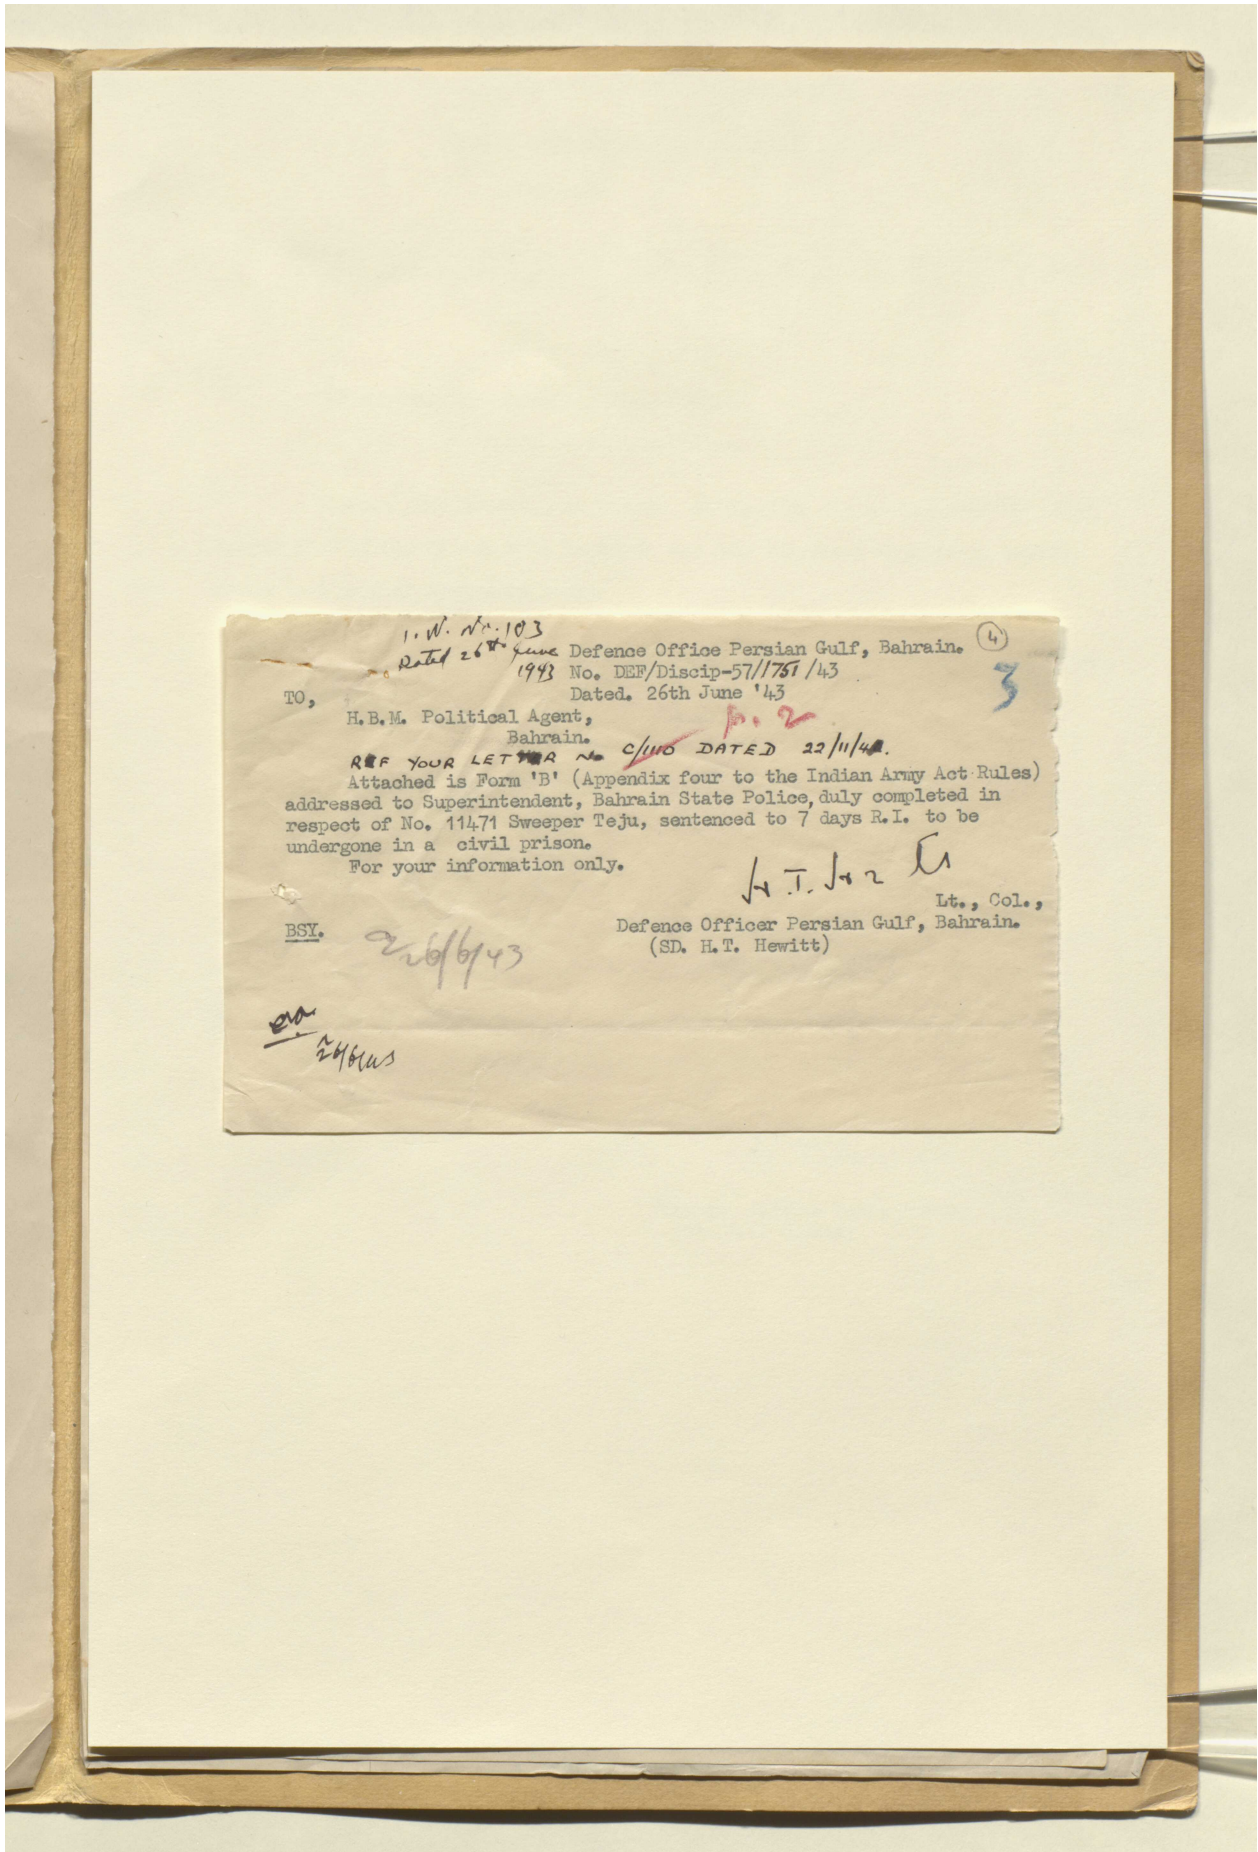 I.W. No. 103
Dated 26th June
1943
4
Defence Office Persian Gulf, Bahrain.
No. DEF/Discip-57/1751/43
3
TO,
Dated. 26th June '43
H.B.M. Political Agent,
p. 2
Bahrain.
REF YOUR LETTER No C/1110 DATED 22/11/42.
Attached is Form 'B' (Appendix four to the Indian Army Act Rules)
addressed to Superintendent, Bahrain State Police, duly completed in
respect of No. 11471 Sweeper Teju, sentenced to 7 days R.I. to be
undergone in a civil prison.
For your information only.
Lt., Col.,
BSY.
Defence Officer Persian Gulf, Bahrain.
(SD. H.T. Hewitt)
26/6/43
26/6/43